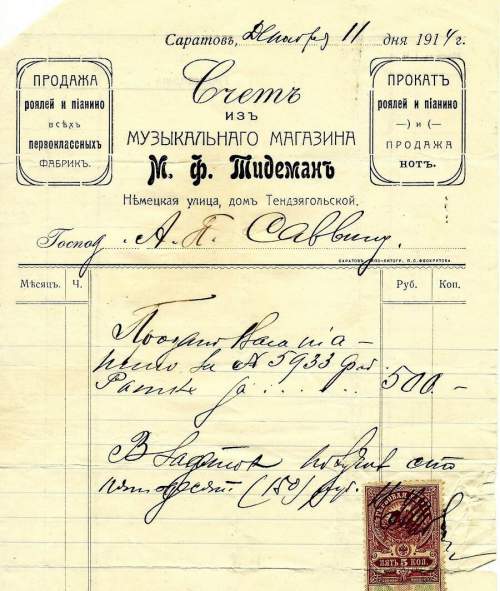 Саратовъ, Декабря 11 дня 1914 г.
ПРОДАЖА
роялей и піанино
всѣхъ
первоклассныхъ
ФАБРИКЪ.
Счетъ
ИЗЪ
МУЗЫКАЛЬНАГО МАГАЗИНА
М. Ф. Тидеманъ
Нѣмецкая улица, домъ Тендзягольской.
ПРОКАТЪ
роялей и піанино
—) и (—
ПРОДАЖА
НОТЪ.
Господ А. П.
САРАТОВЪ П. С. ФЕОКРИТОВА
Мѣсяцъ. Ч. Руб. Коп.
Продано Вам піа-
нино за № 5933 фаб
Ратке за 500 —
В задаток получил сто
пятьдесят (150) руб.
ПЯТЬ 5 КОП.